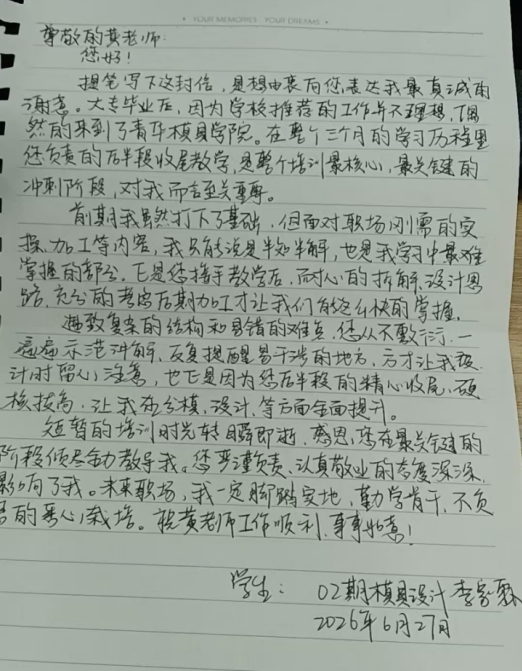 YOUR MEMORIES YOUR DREAMS
尊敬的黄老师:
您好!
提笔写下这封信,是想由衷向您表达我最真诚的
谢意。大专毕业后,因为学校推荐的工作并不理想,偶
然的来到了青华模具学院。在整个三个月的学习历程里
您负责的后半段收尾教学,是整个培训最核心,最关键的
冲刺阶段,对我而言至关重要。
前期我虽然打下了基础,但面对职场刚需的实
操、加工等内容,我只能说是半知半解,也是我学习中最难
掌握的部分。正是您接手教学后,耐心的拆解、设计思
路,充分的考虑后期加工才让我们能这么快的掌握,
遇致复杂的结构和易错的难点,您从不敷衍,一
遍遍示范讲解,反复提醒易干涉的地方,方才让我设
计时留心注意,也正是因为您后半段的精心收尾,硬
核拔高,让我在分模、设计、等方面全面提升。
短暂的培训时光转瞬即逝,感恩您在最关键的
阶段倾尽全力教导我。您严谨负责、认真敬业的态度深深
影响了我。未来职场,我一定脚踏实地,勤学肯干,不负
您的悉心栽培。祝黄老师工作顺利,事事如意!
学生: 02期模具设计 李家霖
2026年6月27日